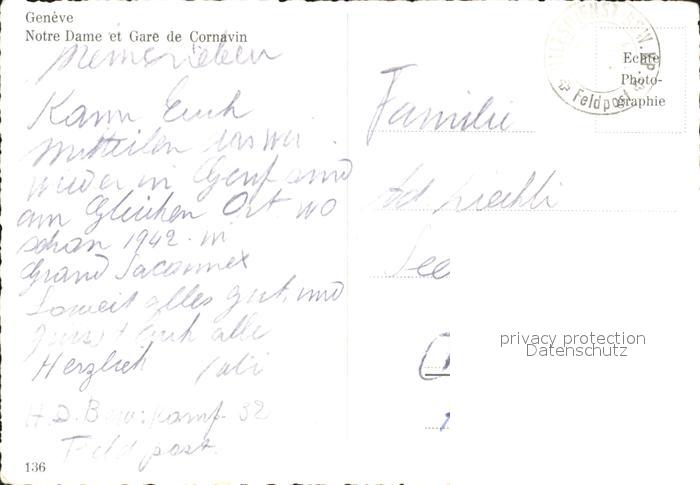 Genève
Notre Dame et Gare de Cornavin
Kann Euch
mitteilen das wir
wieder in Genf sind
am Gleichen Ort wo
schon 1942 in
Grand Sacannex
Soweit alles gut und
Euch alle
Herzlich
H.D. Bew. Komp. 32
Feldpost.
136
Feldpost
Echte
Photo-
graphie
Familie
Ad
See
privacy protection
Datenschutz